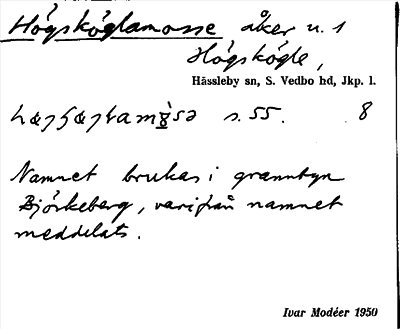 Högskóglamosse åker u. 1
Högskógle,
Hässleby sn, S. Vedbo hd, Jkp. l.
s. 55. 8
Namnet brukas i grannbyn
Björkeberg, varifrån namnet
meddelats.
Ivar Modéer 1950